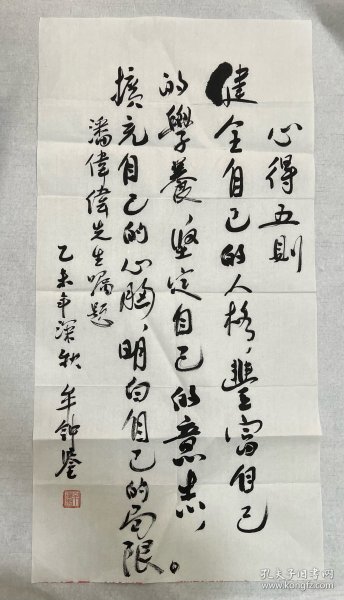 心得五則
健全自己的人格，豐富自己
的學養，堅定自己的意志，
擴充自己的心胸，明白自己的局限。
潘偉偉先生囑題
乙未年深秋 牟鍾鑒
孔夫子旧书网